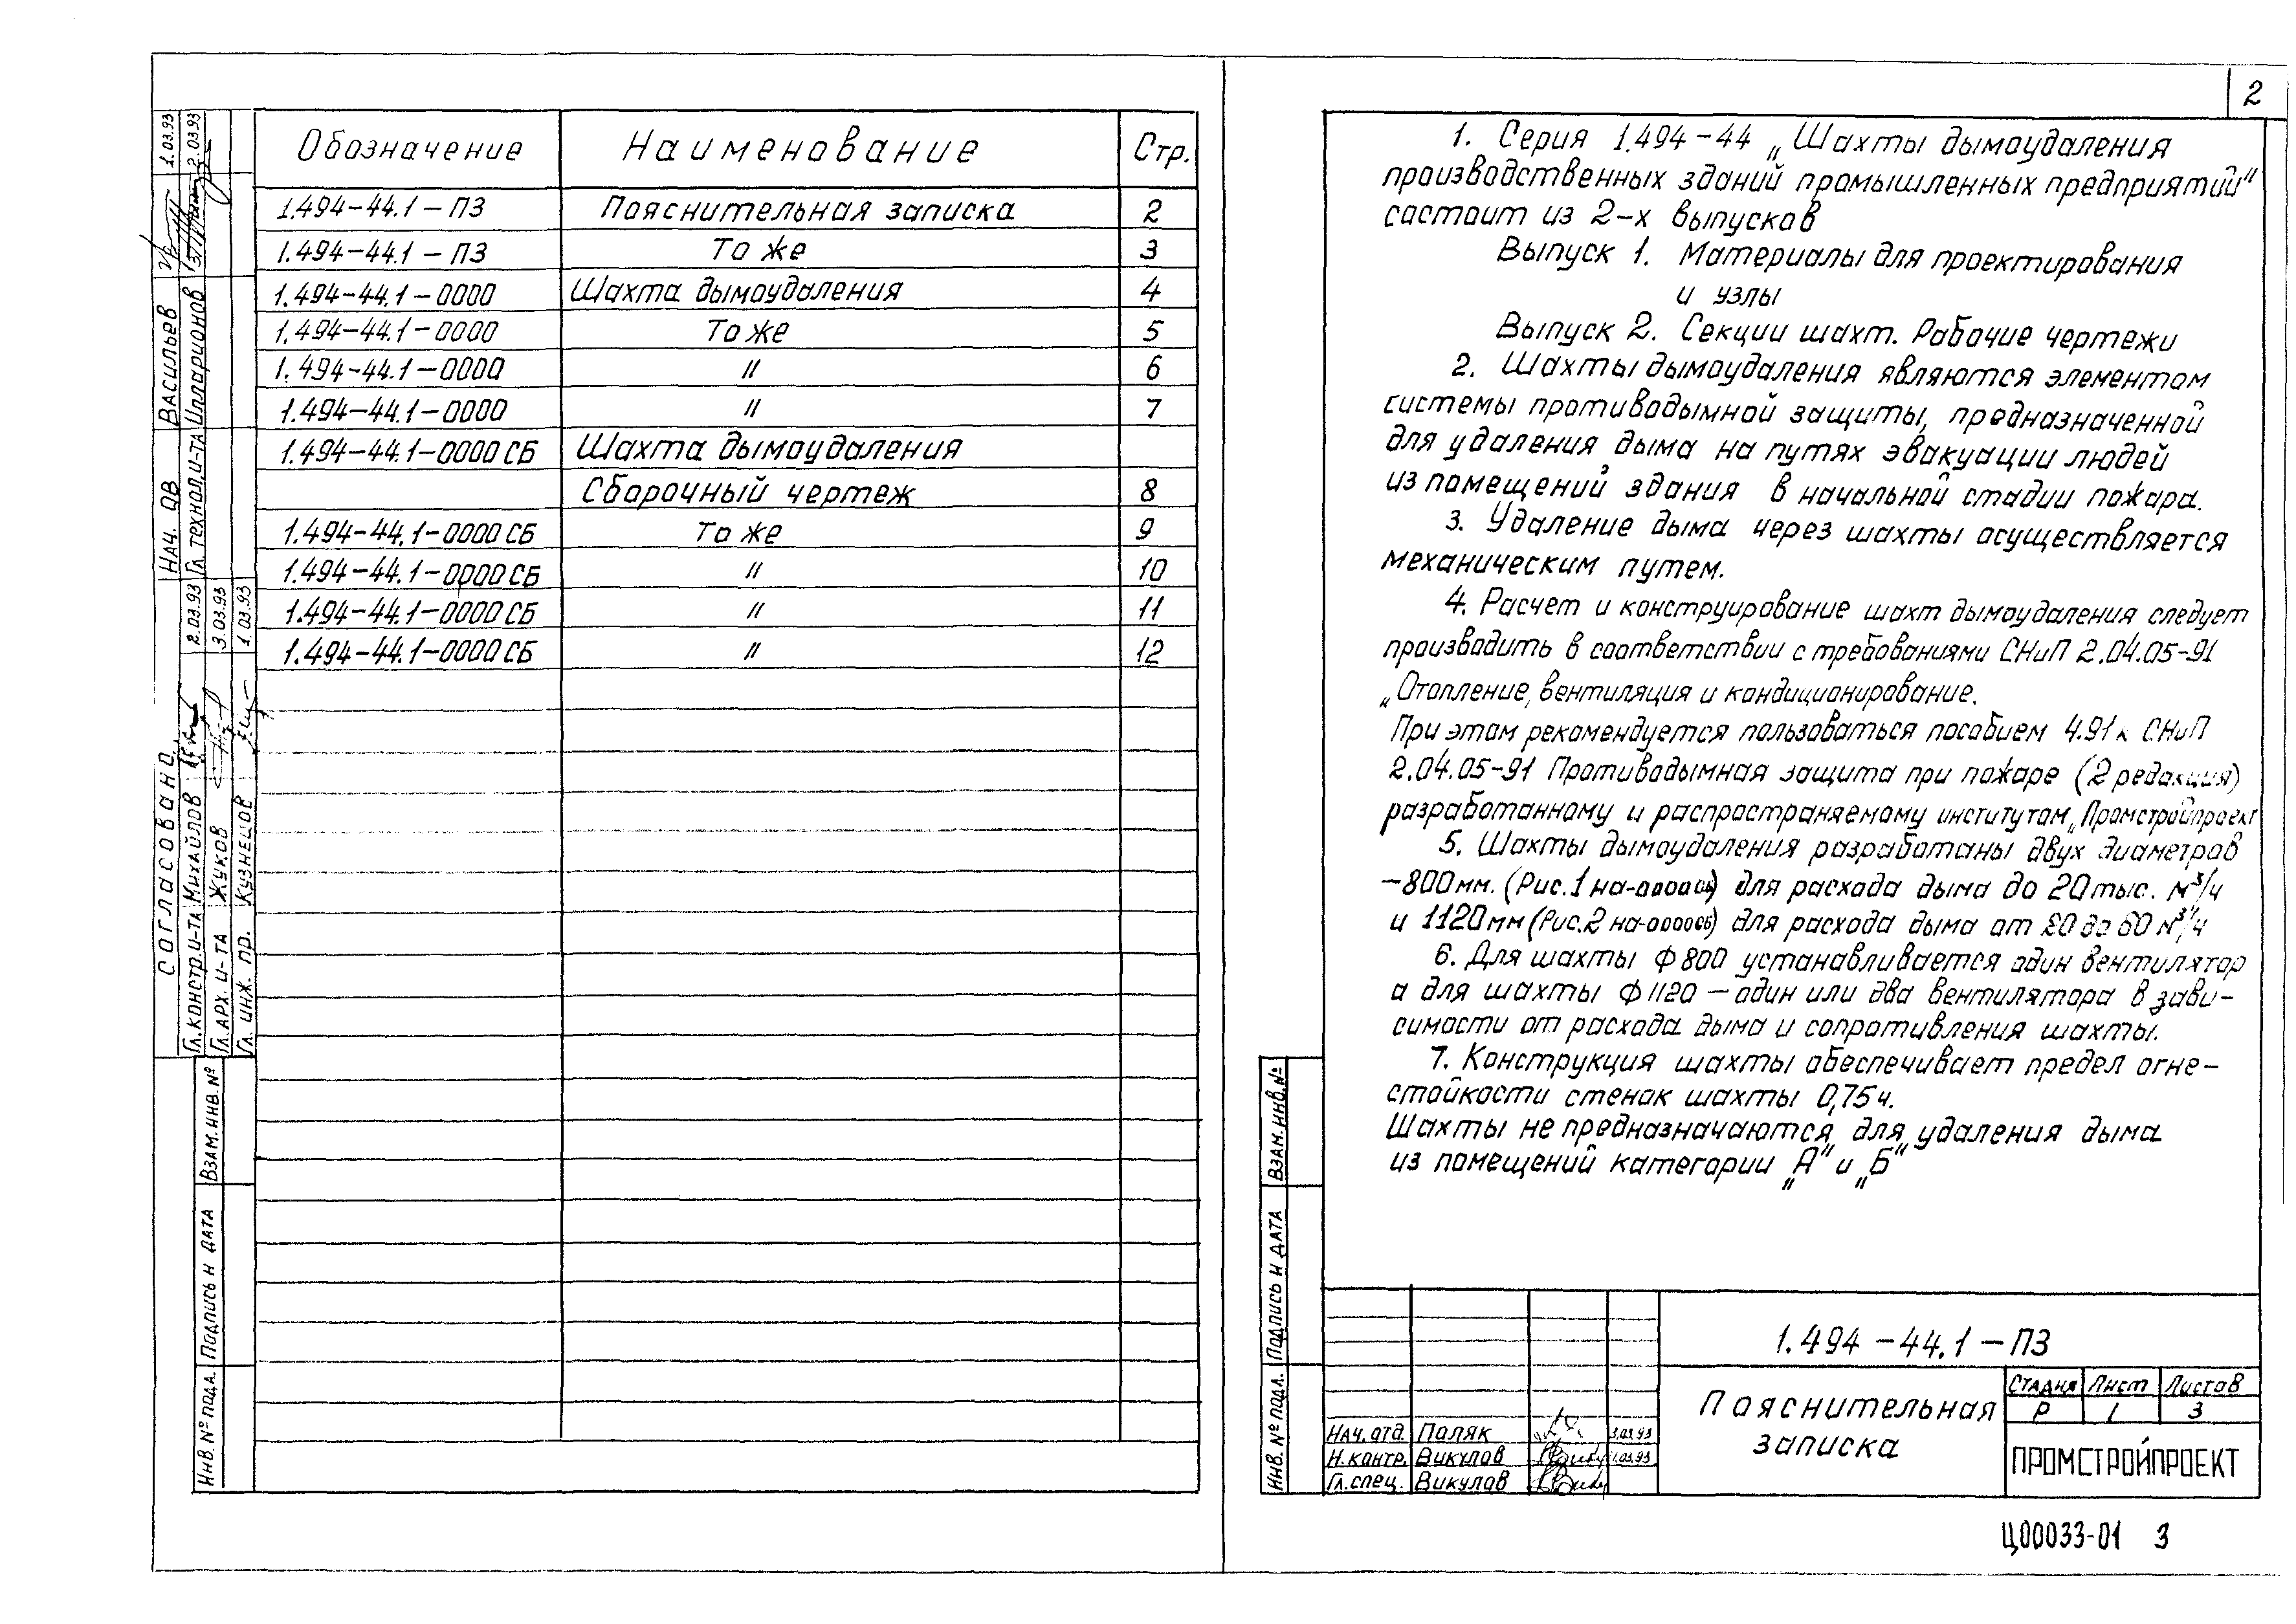 Обозначение Наименование Стр.
1.494-44.1-ПЗ Пояснительная записка 2
1.494-44.1-ПЗ То же 3
1.494-44.1-0000 Шахта дымоудаления 4
1.494-44.1-0000 То же 5
1.494-44.1-0000 " 6
1.494-44.1-0000 " 7
1.494-44.1-0000 СБ Шахта дымоудаления
Сборочный чертеж 8
1.494-44.1-0000 СБ То же 9
1.494-44.1-0000 СБ " 10
1.494-44.1-0000 СБ " 11
1.494-44.1-0000 СБ " 12
Согласовано
Нач. ОВ Васильев 1.03.93
Гл. технол. и-та Илларионов 2.03.93
Гл. констр. и-та Михайлов 2.03.93
Гл. арх. и-та Жуков 3.03.93
Гл. инж. пр. Кузнецов 1.03.93
Инв. № подл. Подпись и дата Взам. инв. №
2
1. Серия 1.494-44 „Шахты дымоудаления
производственных зданий промышленных предприятий"
состоит из 2-х выпусков
Выпуск 1. Материалы для проектирования
и узлы
Выпуск 2. Секции шахт. Рабочие чертежи
2. Шахты дымоудаления являются элементом
системы противодымной защиты, предназначенной
для удаления дыма на путях эвакуации людей
из помещений здания в начальной стадии пожара.
3. Удаление дыма через шахты осуществляется
механическим путем.
4. Расчет и конструирование шахт дымоудаления следует
производить в соответствии с требованиями СНиП 2.04.05-91
„Отопление, вентиляция и кондиционирование.
При этом рекомендуется пользоваться пособием 4.91 к СНиП
2.04.05-91 Противодымная защита при пожаре (2 редакция)
разработанному и распространяемому институтом „Промстройпроект
5. Шахты дымоудаления разработаны двух диаметров
-800мм. (Рис.1 на-0000СБ) для расхода дыма до 20 тыс. м³/ч
и 1120мм (Рис.2 на-0000СБ) для расхода дыма от 20 до 60 м³/ч
6. Для шахты Ф800 устанавливается один вентилятор
а для шахты Ф1120 – один или два вентилятора в зави-
симости от расхода дыма и сопротивления шахты.
7. Конструкция шахты обеспечивает предел огне-
стойкости стенок шахты 0,75ч.
Шахты не предназначаются для удаления дыма
из помещений категории „А" и „Б"
Инв. № подл. Подпись и дата Взам. инв. №
1.494-44.1-ПЗ
Нач. отд. Поляк 3.03.93
Н. контр. Викулов 1.03.93
Гл. спец. Викулов
Пояснительная
записка
Стадия Лист Листов
Р 1 3
ПРОМСТРОЙПРОЕКТ
Ц00033-01 3